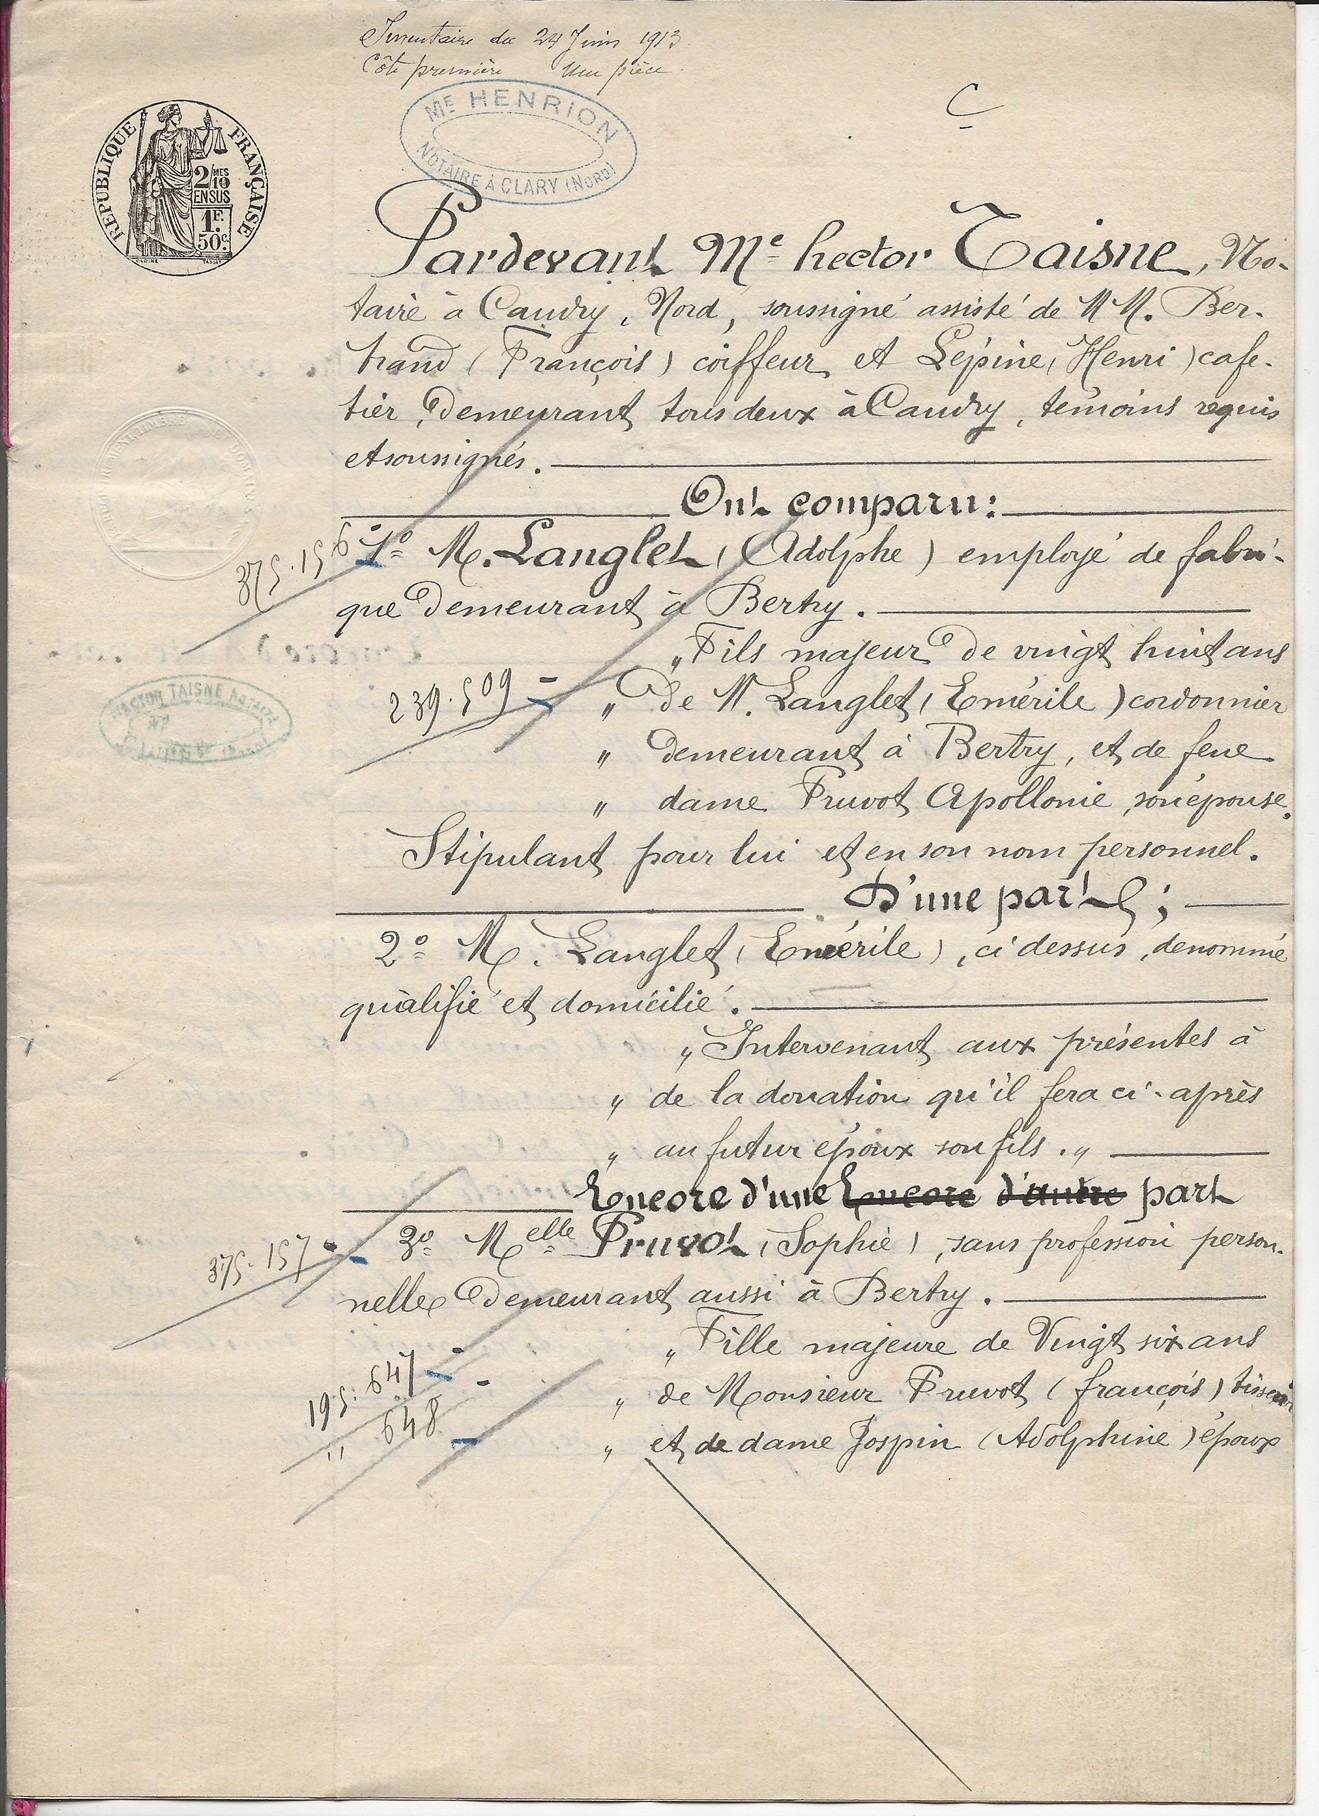 Inventaire du 24 Juin 1913
Côte première Une pièce
C
ME HENRION
NOTAIRE À CLARY (NORD)
REPUBLIQUE FRANÇAISE
2/10 MES
EN SUS
1F.
50c.
Pardevant Me hector Taisne, No-
taire à Caudry, Nord, soussigné assisté de MM. Ber-
trand (François) coiffeur et Lépine (Henri) cafe-
tier, demeurant tous deux à Caudry, témoins requis
et soussignés.
Ont comparu:
375.156 1° M. Langlet (Adolphe) employé de fabri-
que demeurant à Bertry.
„ Fils majeur de vingt huit ans
239.509 „ de M. Langlet (Emérile) cordonnier
HECTOR TAISNE NOTAIRE
„ demeurant à Bertry, et de feue
„ dame Pruvot Apollonie, son épouse.
Stipulant pour lui et en son nom personnel.
D'une part;
2° M. Langlet (Emérile), ci dessus, denommé
qualifié et domicilié.
„ Intervenant aux présentes à
„ de la donation qu'il fera ci-après
„ au futur époux son fils. „
Encore d'une Encore d'autre part
375.157 3° Melle Pruvot (Sophie), sans profession person-
nelle demeurant aussi à Bertry.
„ Fille majeure de Vingt six ans
195.647 „ de Monsieur Pruvot (françois) tisseur
" 648 „ et de dame Jospin (Adolphine) époux